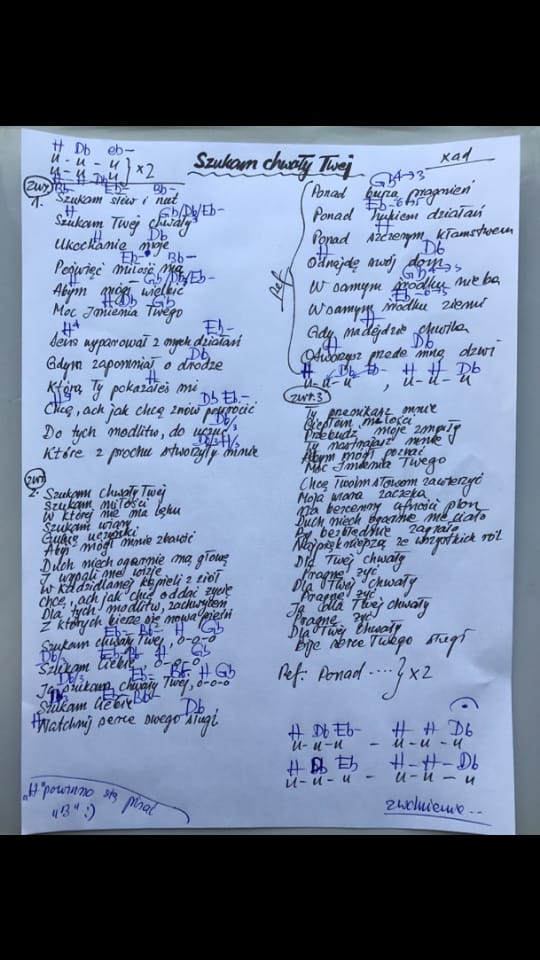 H Db eb-
u - u - u
u - u - u } x2
H H Db
Szukam chwały Twej
zwr
1.
Bb- Eb- Bb-
Szukam słów i nut
H Gb/Db/Eb-
Szukam Twej chwały
H Db
Ukochanie moje
Eb- Bb-
Poświęć miłość mą
H Gb/Db/Eb-
Abym mógł wielbić
H Db Gb
Moc Imienia Twego
H4 Eb-
Sens wyparował z mych działań
Db
Gdym zapomniał o drodze
H
Którą Ty pokazałeś mi
Db Eb-
Chcę, ach jak chcę znów powrócić
Db
Do tych modlitw, do uczuć
Db/3 H/3
Które z prochu stworzyły mnie
zwr
2. Szukam chwały Twej
Szukam miłości
W której nie ma lęku
Szukam wiary
Gubię uczynki
Abyś mógł mnie zbawić
Duch niech ogarnie mą głowę
I wypali me
W kadzidlanej kąpieli z ziół
Chcę, ach jak chcę oddać życie
Dla tych modlitw, zachwyceń
Z których bierze się nowa pieśń
Eb- Bb- H Gb
Szukam chwały Twej, o-o-o
Db/3 Eb- Bb- H Gb
Szukam Ciebie, o-o-o
Db/3 Eb- Bb- H Gb
Ja szukam chwały Twej, o-o-o
Db/3 Eb- Bb-
Szukam Ciebie
H Db
Natchnij serce swego sługi
"H" powinno się pisać
"B" :)
Ref
Gb4→3
Ponad burzą pragnień
Eb-6→5
Ponad hukiem działań
H
Ponad szczerym kłamstwem
H Db
Odnajdę swój dom
Gb4→3
W samym środku nieba
Eb-6→5
W samym środku ziemi
H
Gdy nadejdzie chwilka
H Db
Otworzysz przede mną drzwi
H Db Eb- H H Db
u - u - u , u - u - u
zwr.3
Ty przenikasz mnie
Ciepłem miłości
Przebudź moje zmysły
Ty nastrajasz mnie
Abym mógł poznać
Moc Imienia Twego
Chcę Twoim słowom zawierzyć
Moja wiara zaczeka
Na bezcenny ufności plon
Duch niech ogarnie me ciało
By bezbłędnie zagrało
Najpiękniejszą ze wszystkich ról
Dla Twej chwały
Pragnę żyć
Dla Twej chwały
Pragnę żyć
Ja dla Twej chwały
Pragnę żyć
Dla Twej chwały
Bije serce Twego sługi
Ref: Ponad ....} x2
H Db Eb- H H Db
u - u - u - u - u - u
H Db Eb- H H Db
u - u - u - u - u - u
zwolnienie...